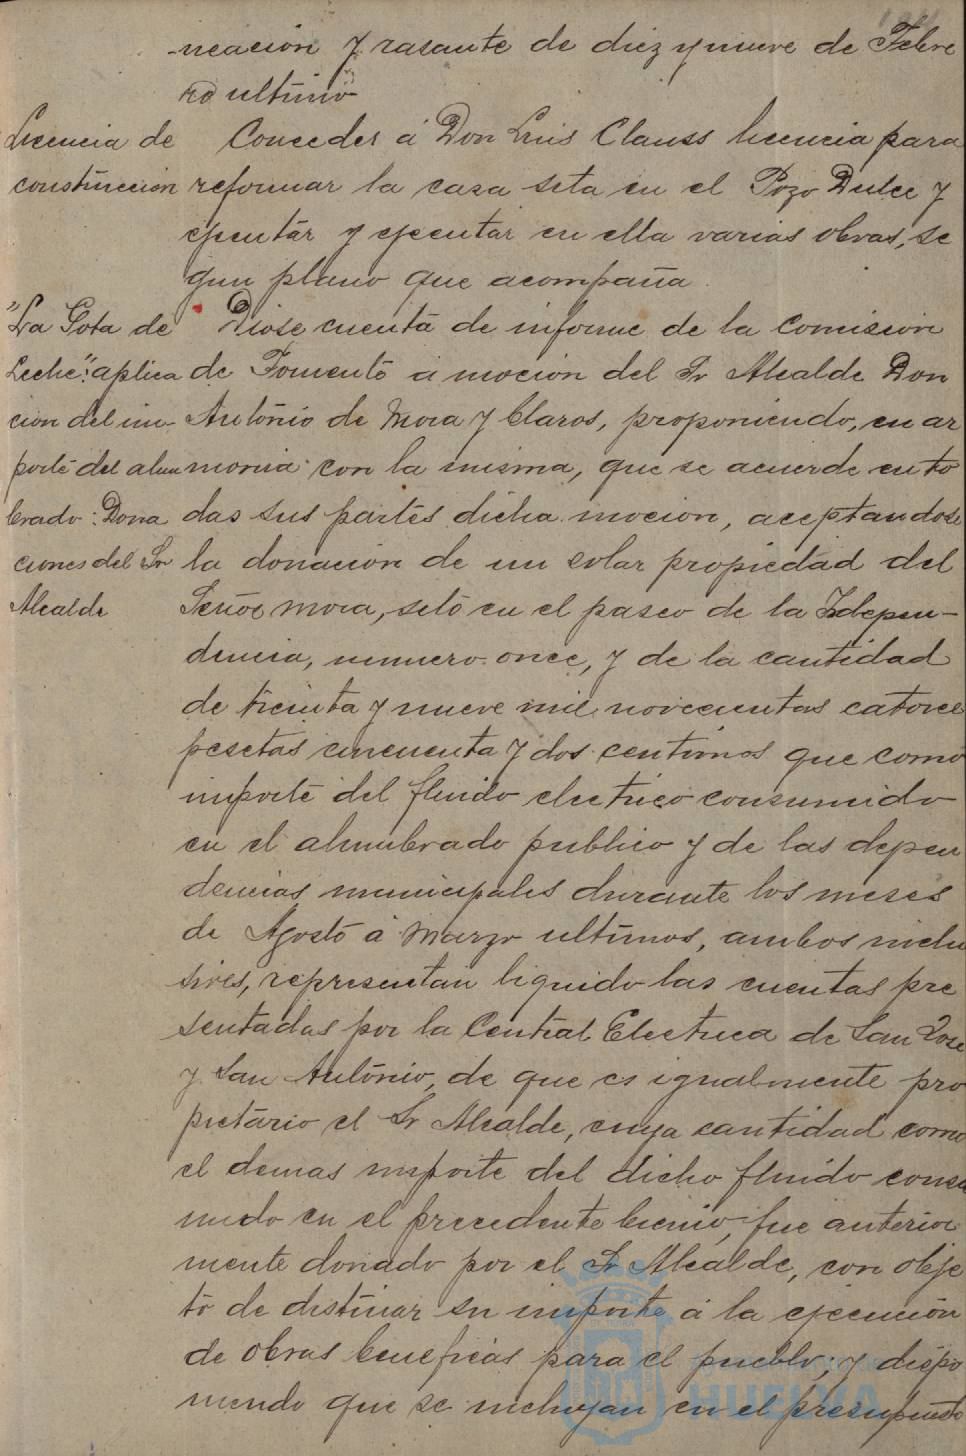 neación y rasante de diez y nueve de Febre
ro ultimo
Licencia de
construccion
Conceder á Don Luis Clauss licencia para
reformar la casa sita en el Pozo Dulce y
ejecutar y ejecutar en ella varias obras, se
gun plano que acompaña.
"La Gota de
Leche": aplica
cion del im-
porte del alum
brado: Dona
ciones del Sr
Alcalde
Diose cuenta de informe de la Comision
de Fomento á mocion del Sr Alcalde Don
Antonio de Mora y Claros, proponiendo, en ar
monia con la misma, que se acuerde en to
das sus partes dicha mocion, aceptandose
la donación de un solar propiedad del
Señor Mora, sito en el paseo de la Indepen-
dencia, numero once, y de la cantidad
de treinta y nueve mil novecientas catorce
pesetas cincuenta y dos centimos que como
importe del fluido electrico consumido
en el alumbrado publico y de las depen
dencias municipales durante los meses
de Agosto á Marzo ultimos, ambos inclu
sives, representan liquido las cuentas pre
sentadas por la Central Electrica de San José
y San Antonio, de que es igualmente pro
pietario el Sr Alcalde, cuya cantidad como
el demas importe del dicho fluido consu
mido en el precedente bienio, fue anterior
mente donado por el Sr Alcalde, con obje
to de destinar su importe á la ejecución
de obras beneficas para el pueblo; y dispo
niendo que se incluyan en el presupuesto
HUELVA